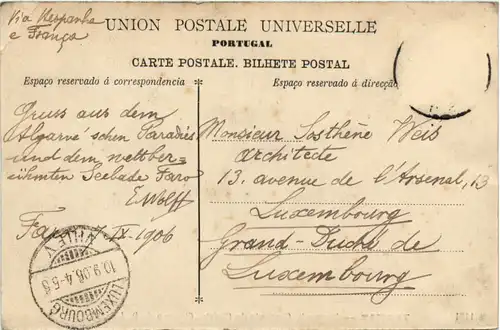 Via Hespanha
e França
UNION POSTALE UNIVERSELLE
PORTUGAL
CARTE POSTALE. BILHETE POSTAL
Espaço reservado á correspondencia
Espaço reservado á direcção
Gruss aus dem
Algarve'schen Paradies
und dem weltber=
ühmten Seebade Faro
E. Wolff
Faro IX 1906
Monsieur Sosthène Weis
architecte
13. avenue de l'Arsenal, 13
Luxembourg
Grand-Duché de
Luxembourg
LUXEMBOURG
VILLE
10.9.06.4-5